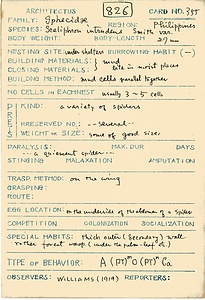 ARCHITECTUS 826 CARD NO. 355
FAMILY: Sphecidae REGION: Philippines
SPECIES: Sceliphron intrudens Smith var.
BODY WEIGHT: BODY-LENGTH 27 mm
NESTING SITE under shelters BURROWING HABIT (—)
BUILDING MATERIALS: } mud
CLOSING MATERIALS: } like in moist places
BUILDING METHOD: mud cells parallel together
NO. CELLS IN EACH NEST usually 3~5 cells
KIND: a variety of spiders
PRESERVED NO.: --several--
WEIGHT OR SIZE: some of good size.
PARALYSIS: MAX. DUR DAYS
---a quiescent spider---
STINGING MALAXATION AMPUTATION
TRASP. METHOD: on the wing
GRASPING:
ROUTE:
EGG LOCATION: on the underside of the abdomen of a spider
COMPETITION COLONIZATION SOCIALIZATION
SPECIAL HABITS: thick outer (secondary) wall
rather forest wasp (under the palm-leaf etc.)
TYPE OF BEHAVIOR: A (PT)ⁿ O (PT)ⁿ Ca
OBSERVERS: WILLIAMS (1919) REPORTERS: